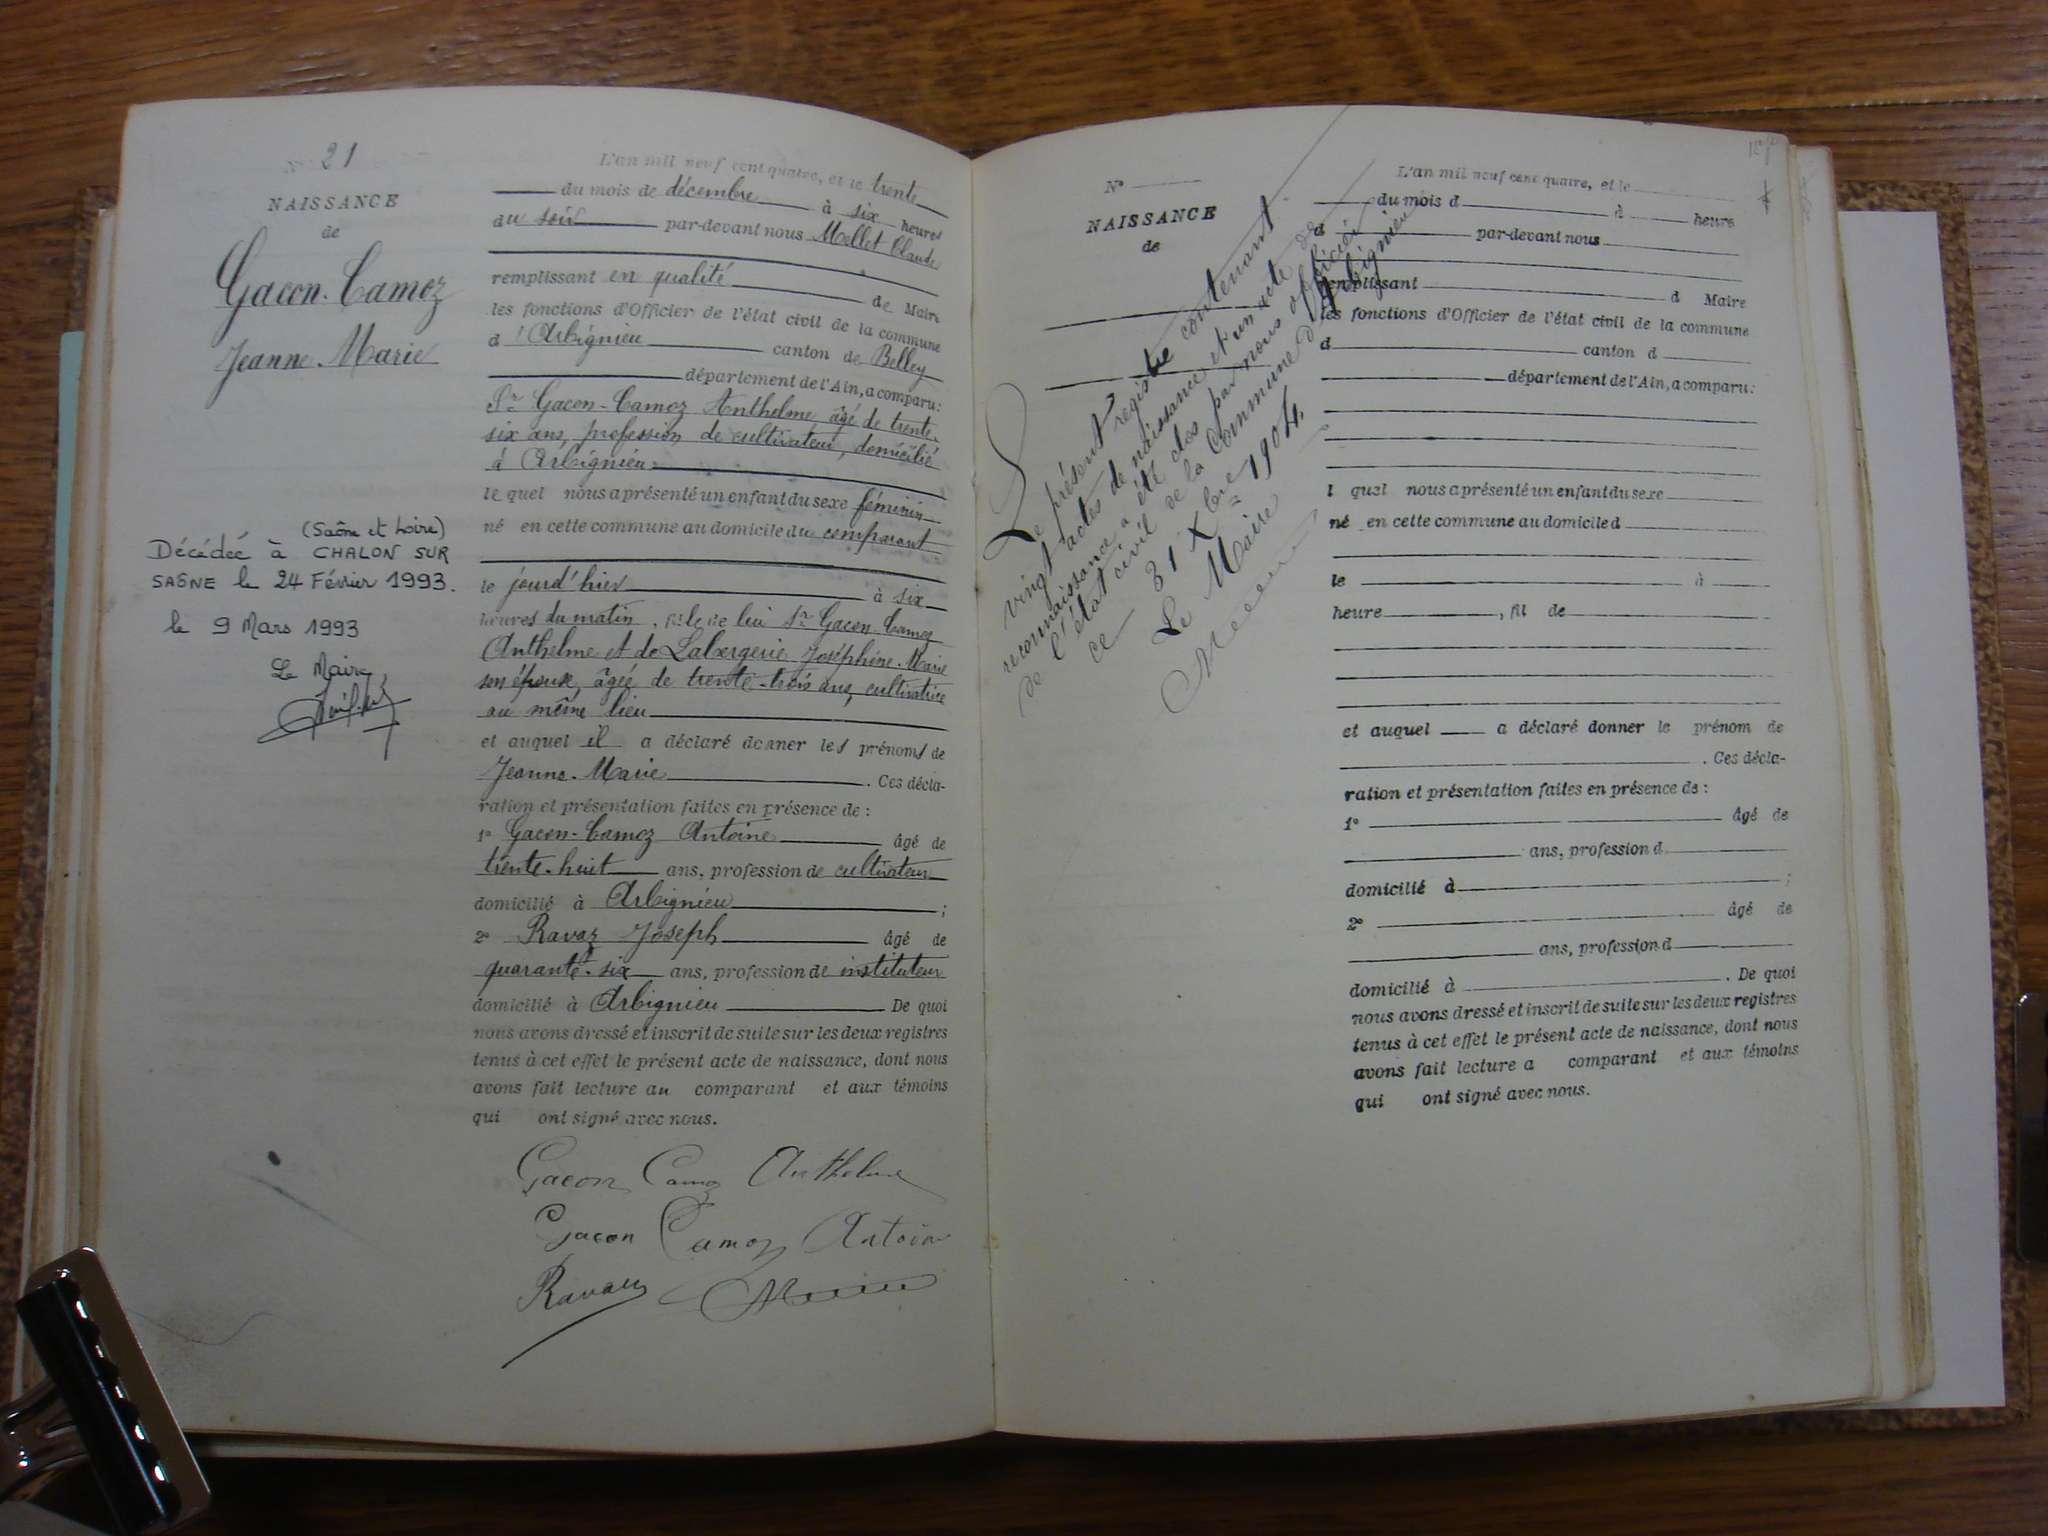 21
NAISSANCE
de
Gacon-Camoz
Jeanne-Marie
(Saône et Loire)
Décédée à CHALON SUR
SAÔNE le 24 Février 1993.
le 9 Mars 1993
Le Maire,
L'an mil neuf cent quatre, et le trente
du mois de décembre à six heures
du soir par-devant nous Mellet Claude
remplissant en qualité de Maire
les fonctions d'Officier de l'état civil de la commune
d'Arbignieu canton de Belley
département de l'Ain, a comparu:
Sr Gacon-Camoz Anthelme âgé de trente-
six ans, profession de cultivateur, domicilié
à Arbignieu
le quel nous a présenté un enfant du sexe féminin
né en cette commune au domicile du comparant
le jourd'hier à six
heures du matin, fille de lui Sr Gacon-Camoz
Anthelme et de Labergerie Joséphine-Marie
son épouse, âgée de trente-trois ans, cultivatrice
au même lieu
et auquel il a déclaré donner les prénoms de
Jeanne-Marie. Ces décla-
ration et présentation faites en présence de :
1° Gacon-Camoz Antoine âgé de
trente-huit ans, profession de cultivateur
domicilié à Arbignieu ;
2° Ravaz Joseph âgé de
quarante-six ans, profession de instituteur
domicilié à Arbignieu De quoi
nous avons dressé et inscrit de suite sur les deux registres
tenus à cet effet le présent acte de naissance, dont nous
avons fait lecture au comparant et aux témoins
qui ont signé avec nous.
Gacon Camoz Anthelme
Gacon Camoz Antoine
Ravaz
N°
NAISSANCE
de
Le présent registre contenant
vingt actes de naissance et un acte de
reconnaissance a été clos par nous officier
de l'état civil de la Commune d'Arbignieu
ce 31 Xbre 1904.
Le Maire
L'an mil neuf cent quatre, et le
du mois d à heure
d par-devant nous
remplissant d Maire
les fonctions d'Officier de l'état civil de la commune
d canton d
département de l'Ain, a comparu:
l quel nous a présenté un enfant du sexe
né en cette commune au domicile d
le à
heure , fil de
et auquel a déclaré donner le prénom de
. Ces décla-
ration et présentation faites en présence de :
1° âgé de
ans, profession d
domicilié à ;
2° âgé de
ans, profession d
domicilié à . De quoi
nous avons dressé et inscrit de suite sur les deux registres
tenus à cet effet le présent acte de naissance, dont nous
avons fait lecture a comparant et aux témoins
qui ont signé avec nous.